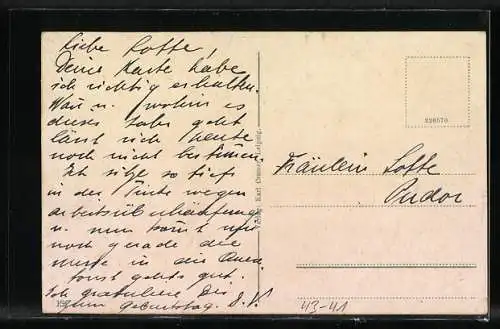 Liebe Lotte,
Deine Karte habe
ich richtig erhalten.
Wann u. wohin es
dieses Jahr geht
lässt sich heute
noch nicht bestimmen.
Ich sitze so tief
in der Tinte wegen
arbeitsüberhäufung
u. nun kommt mir
noch gerade die
in die
sonst gehts gut.
Ich gratuliere Dir
zum Geburtstag. D. V.
Verlag Karl Leipzig.
226570
Fräulein Lotte
Pudor
43-41